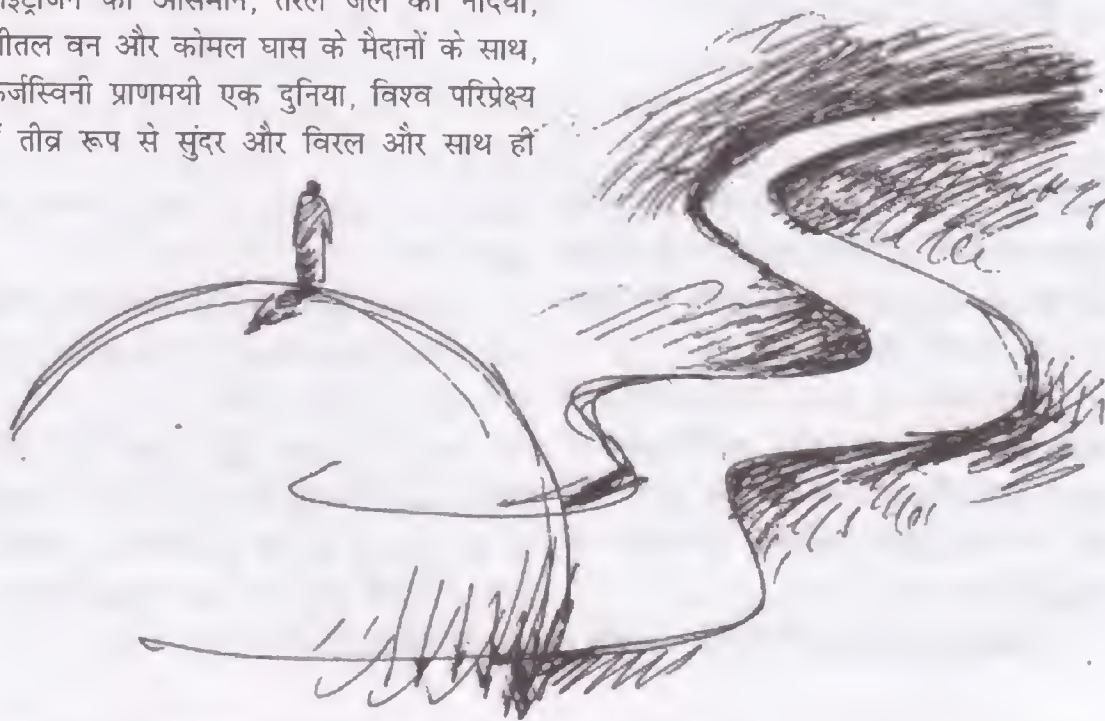 आसमान, तरल जल
शीतल वन और कोमल घास के मैदानों के साथ,
ऊर्जस्विनी प्राणमयी एक दुनिया, विश्व परिप्रेक्ष्य
तीव्र रूप से सुंदर और विरल और साथ ही